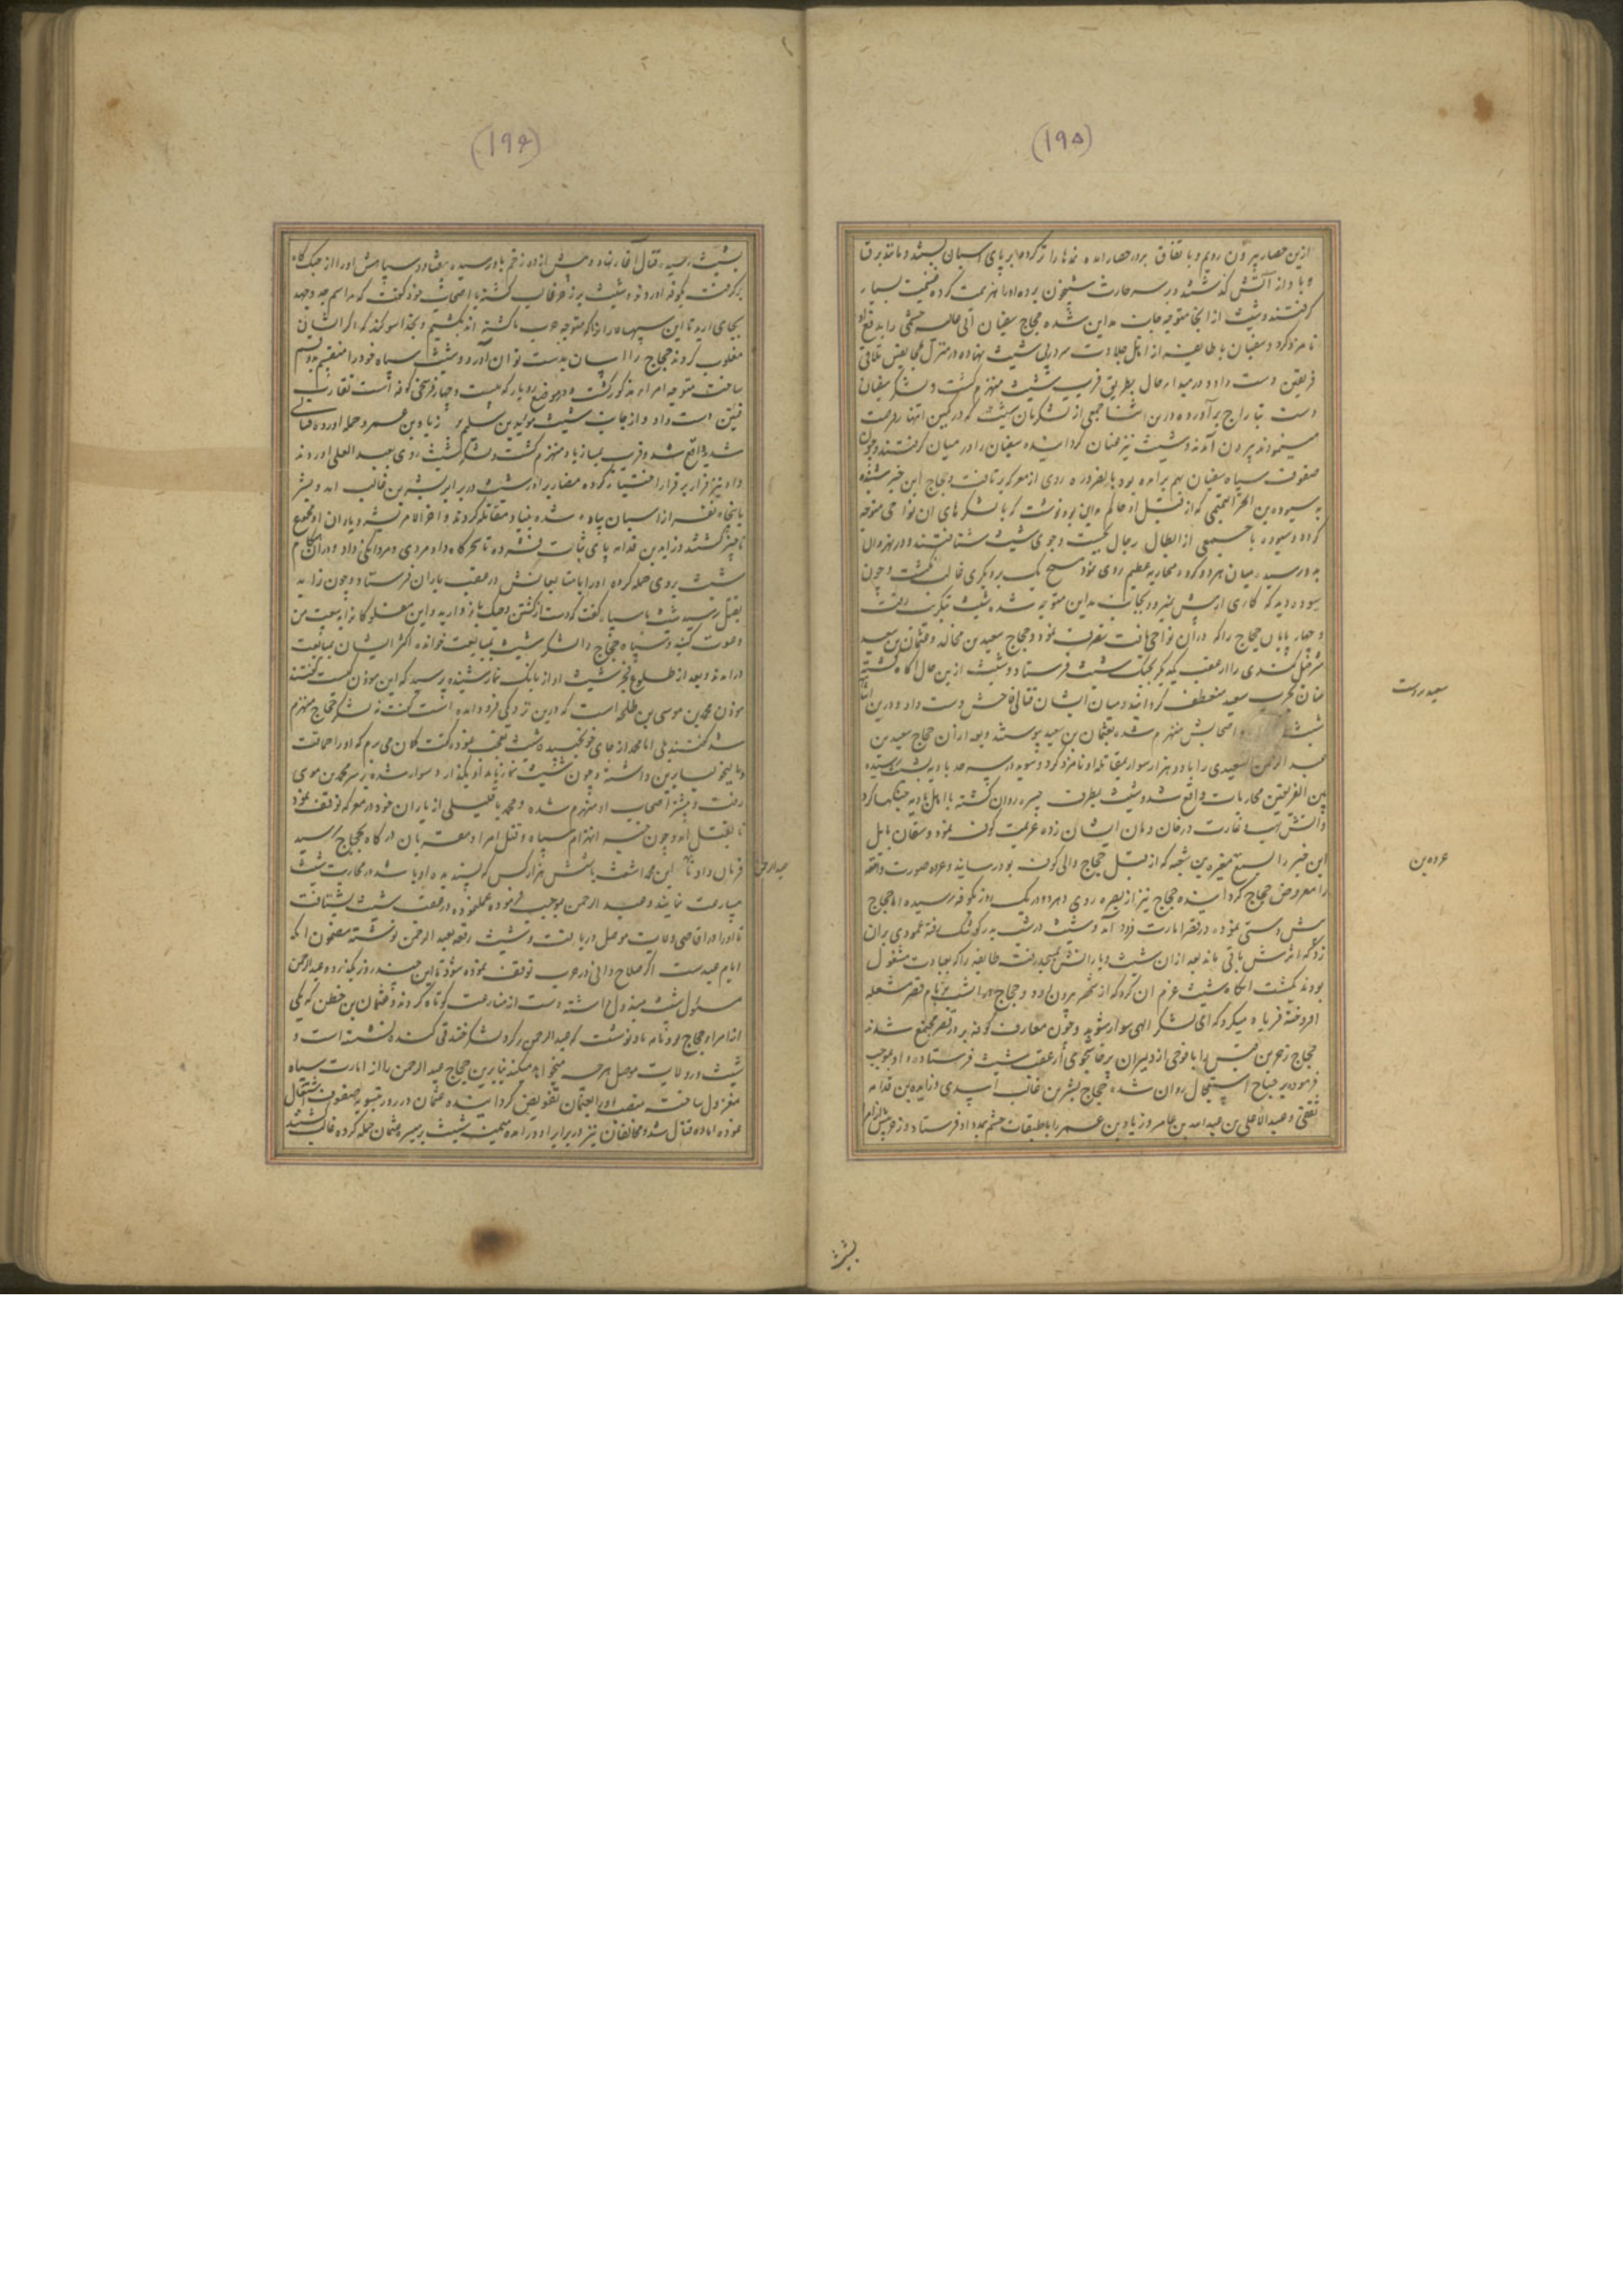 (۱۹۵)
ازین حصار بیرون رویم و باتفاق بر در حصار آمده نمدها را تر کرده بر پای اسبان بستند و مانند برق
و باد از آتش گذشتند و بر سر حارث شبیخون برده او را هزیمت کرده غنیمت بسیار
گرفتند و شبیب از آنجا متوجه جانب مداین شده حجاج سفیان ابی عالیه خثعمی را بدفع او
نامزد کرد و سفیان با طایفه از اهل جلادت سر در پی شبیب نهاده در منزل خانقین تلاقی
فریقین دست داد و در مبدا حال بطریق فریب شبیب منهزم گشت و لشکر سفیان
دست بتاراج برآورده درین اثنا جمعی از لشکریان شبیب که در کمین انتهاز فرصت
مینمودند بیرون آمدند و شبیب نیز عنان گردانیده سفیان را در میان گرفتند و چون
صفوف سپاه سفیان بهم برآمده بود بالضروره روی از معرکه برتافت و حجاج این خبر شنیده
به سوره بن الحر التمیمی که از قبل او حاکم مداین بود نوشت که با لشکرهای آن نواحی متوجه
گردد و سوره با جمعی از ابطال رجال بجست و جوی شبیب شتافتند و در نهروان
بدو رسید میان هر دو گروه محاربه عظیم روی نمود هیچ یک بر دیگری غالب نگشت و چون
سوره دید که کاری از پیش نمیرود بجانب مداین متوجه شد شبیب بتکریت رفت
و چهار پایان حجاج را که در آن نواحی یافت تصرف نمود و حجاج سعید بن مجالد و عثمان بن سعید
شرحبیل کندی را از عقب یکدیگر بجنگ شبیب فرستاد و شبیب ازین حال آگاه گشته
عنان بحرب سعید منعطف گردانید و میان ایشان قتالی فاحش دست داد و درین اثنا
شبیب اصحابش منهزم شده بعثمان بن سعید پیوستند و بعد از آن حجاج سعید بن
عبد الرحمن السعیدی را با دو هزار سوار بمقاتله او نامزد کرد و سوید در سرحد بادیه بشبیب رسیده
بین الفریقین محاربات واقع شد و شبیب بطرف حیره روان گشته با اهل بادیه جنگها کرد
و آتش نهب و غارت در خان و مان ایشان زده عزیمت کوفه نمود و دهقان بابل
این خبر را بسمع مغیره بن شعبه که از قبل حجاج والی کوفه بود رسانید و عروه صورت واقعه
را معروض حجاج گردانیده حجاج نیز از بصره روی در هر دو در یک روز بکوفه رسیده اما حجاج
پیش دستی نموده در قصر امارت فرود آمد و شبیب در شب بدر کوشک رفته عمودی بران
زد که اثرش باقی ماند بعد از آن شبیب و یارانش بمسجد رفته طایفه را که بعبادت مشغول
بودند بکشت آنگاه شبیب عزم آن کرد که از شهر بیرون رود و حجاج در آن شب بر بام قصر مشعله
افروخته فریاد میکرد که ای لشکر الهی سوار شوید و چون معارف کوفه بر در قصر مجتمع شدند
حجاج زحر بن قیس را با فوجی از دلیران پرخاشجوی از عقب شبیب فرستاد و او بموجب
فرموده بر جناح استعجال روان شده حجاج بشر بن غالب اسدی و زایده بن قدامه
ثقفی و عبد الاعلی بن عبد الله بن عامر و زیاد بن عمرو را با طبقات حشم بمدد او فرستاد و زحر پیش از همه
سعید دوست
عروه بن
بشبیب
(۱۹۶)
بشبیب رسیده قتال آغاز نهاد و بیش از ده زخم بدو رسیده بیفتاد و سپاهش او را از جنگ گاه
برگرفته بکوفه آوردند و شبیب بر زحر غالب گشته با اصحاب خود گفت که مراسم جد و جهد
بجای آرید تا این سپهسالاران را که متوجه حرب ما گشته اند بکشیم و بخدا سوکند که اگر ایشان
مغلوب گردند حجاج را آسان بدست توان آورد و شبیب سپاه خود را منقسم بدو قسم
ساخت متوجه امراء مذکور گشت و در موضع رودبار که بیست و چهار فرسخی کوفه است تقارب
فئتین دست داد و از جانب شبیب سوید بن سلیم بر زیاد بن عمرو حمله آورده قتالی
شدید واقع شد و قریب بساز یاد منهزم گشت و لشکر شبیب روی بعبد الاعلی آوردند
و او نیز فرار بر قرار اختیار کرده مصاد برادر شبیب در برابر بشر بن غالب آمد و بشر
با پنجاه نفر از اسبان پیاده شده بنیاد مقاتله کردند و آخر الامر بشر و یاران او مجموع
ناچیز گشتند و زاید بن قدامه پای ثبات فشرده تا سحرگاه داد مردی و مردانگی داد و در آن هنگام
شبیب بروی حمله کرده او را با متابعانش در عقب یاران فرستاد و چون زاید
بقتل رسید شبیب با سپاه گفت که دست از کشتن و جنگ باز دارید و این مفلوکان را به بیعت من
دعوت کنید و سپاه حجاج را لشکر شبیب بمبایعت خوانده اکثر ایشان بمبایعت
درآمدند و بعد از طلوع فجر شبیب آواز بانک نماز شنیده پرسید که این موذن کیست گفتند
موذن محمد بن موسی بن طلحه است که درین نزدیکی فرود آمده است گفت نه لشکر حجاج منهزم
شد گفتند بلی اما محمد از جای خود نجنبیده شبیب تعجب نموده گفت گمان می برم که او را حماقت
و مالیخولیا برین داشته و چون شبیب نماز بامداد بگذارد و سوار شده بر سر محمد بن موسی
رفت و بیشتر اصحاب او منهزم شده و محمد با قلیلی از یاران خود در معرکه توقف نمود
تا بقتل آمد و چون خبر انهزام سپاه و قتل امرا و مقربان درگاه بحجاج رسید
فرمان داد تا ابن محمد اشعث با شش هزار کس که پسندیده او باشد در محاربت شبیب
مسارعت نمایند و عبد الرحمن بموجب فرموده عمل نموده در عقب شبیب بشتافت
تا او را در اقاصی ولایت موصل دریافت و شبیب رقعه بعبد الرحمن نوشته مضمون آنکه
ایام عید است اگر صلاح دانی در حرب توقف نموده شود تا این چند روز بگذرد و عبد الرحمن
مسئول شبیب مبذول داشته دست از منازعت کوتاه کردند و عثمان بن قطن که یکی
از امراء حجاج بود نامه بدو نوشت که عبد الرحمن بر گرد لشکر خندقی کنده نشسته است و
شبیب در ولایت موصل هر چه میخواهد میکند بنابرین حجاج عبد الرحمن را از امارت سپاه
معزول ساخت منصب او را بعثمان تفویض گردانیده عثمان در روز تسویه صفوف اشتغال
نموده آماده قتال شد و مخالفان نیز در برابر او درآمده میمنه شبیب بر میسره عثمان حمله کرده غالب گشتند
عبد الرحمن